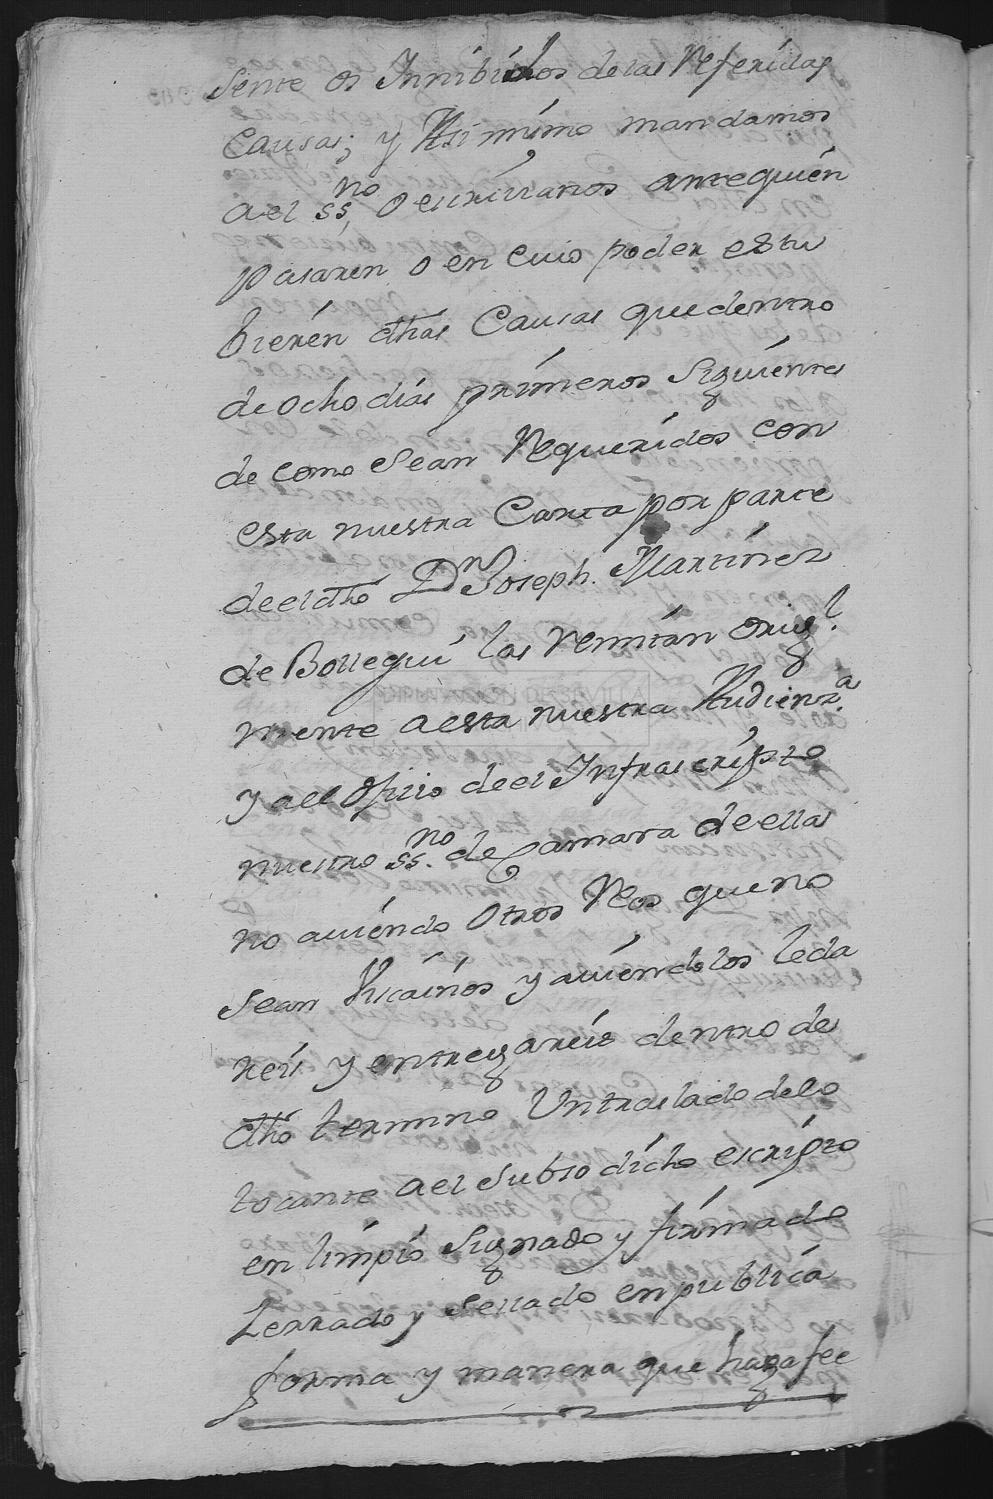 sente os Innibidos delas Referidas
Causas; y Asi mismo mandamos
ael ssno. o escrivanos antequién
pasaren o en cuio poder estu
bierén dhas Causas que dentro
de ocho diás priméros Siguientes
de como sean Requeridos con
esta nuestra Carta por parte
deel dho Dn Joseph. Martinez
de Bollegui las remitan orígl.
mente aesta nuestra Audienza.
y ael ofizio deel Infraescripto
nuestro ssno. de Camara de ella
no aviéndo otros Reos que no
sean Viscainos y aviendolos le da
reis y entregaréis dentro de
dho termino Un traslado delo
tocante ael Subso dicho escripto
en limpio Signado y firmado
Zerrado y Sellado en publica
forma y manera que haga fee